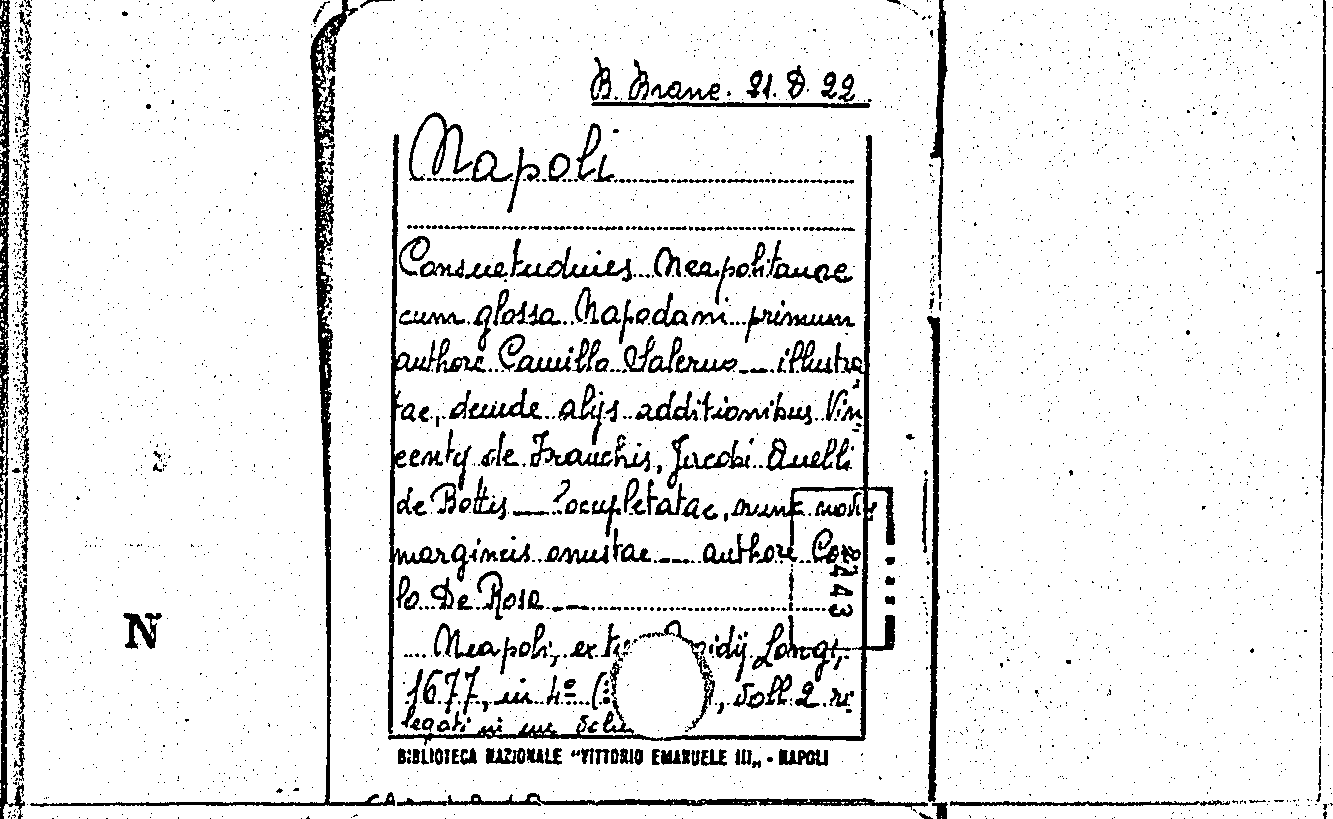 B. Branc. 21. D. 22
Napoli
Consuetudines Neapolitanae
cum glossa Napodani primum
authore Camillo Salerno — illustra-
tae, deinde alijs additionibus Vin-
centy de Franchis, Jacobi Anelli
de Bottis — locupletatae, nunc
margineis onustae — authore
lo De Rosa —
Neapoli, ex Longi,
1677, in 4º ( , voll 2 ri-
legati in un
2443
BIBLIOTECA NAZIONALE "VITTORIO EMANUELE III„ - NAPOLI
N